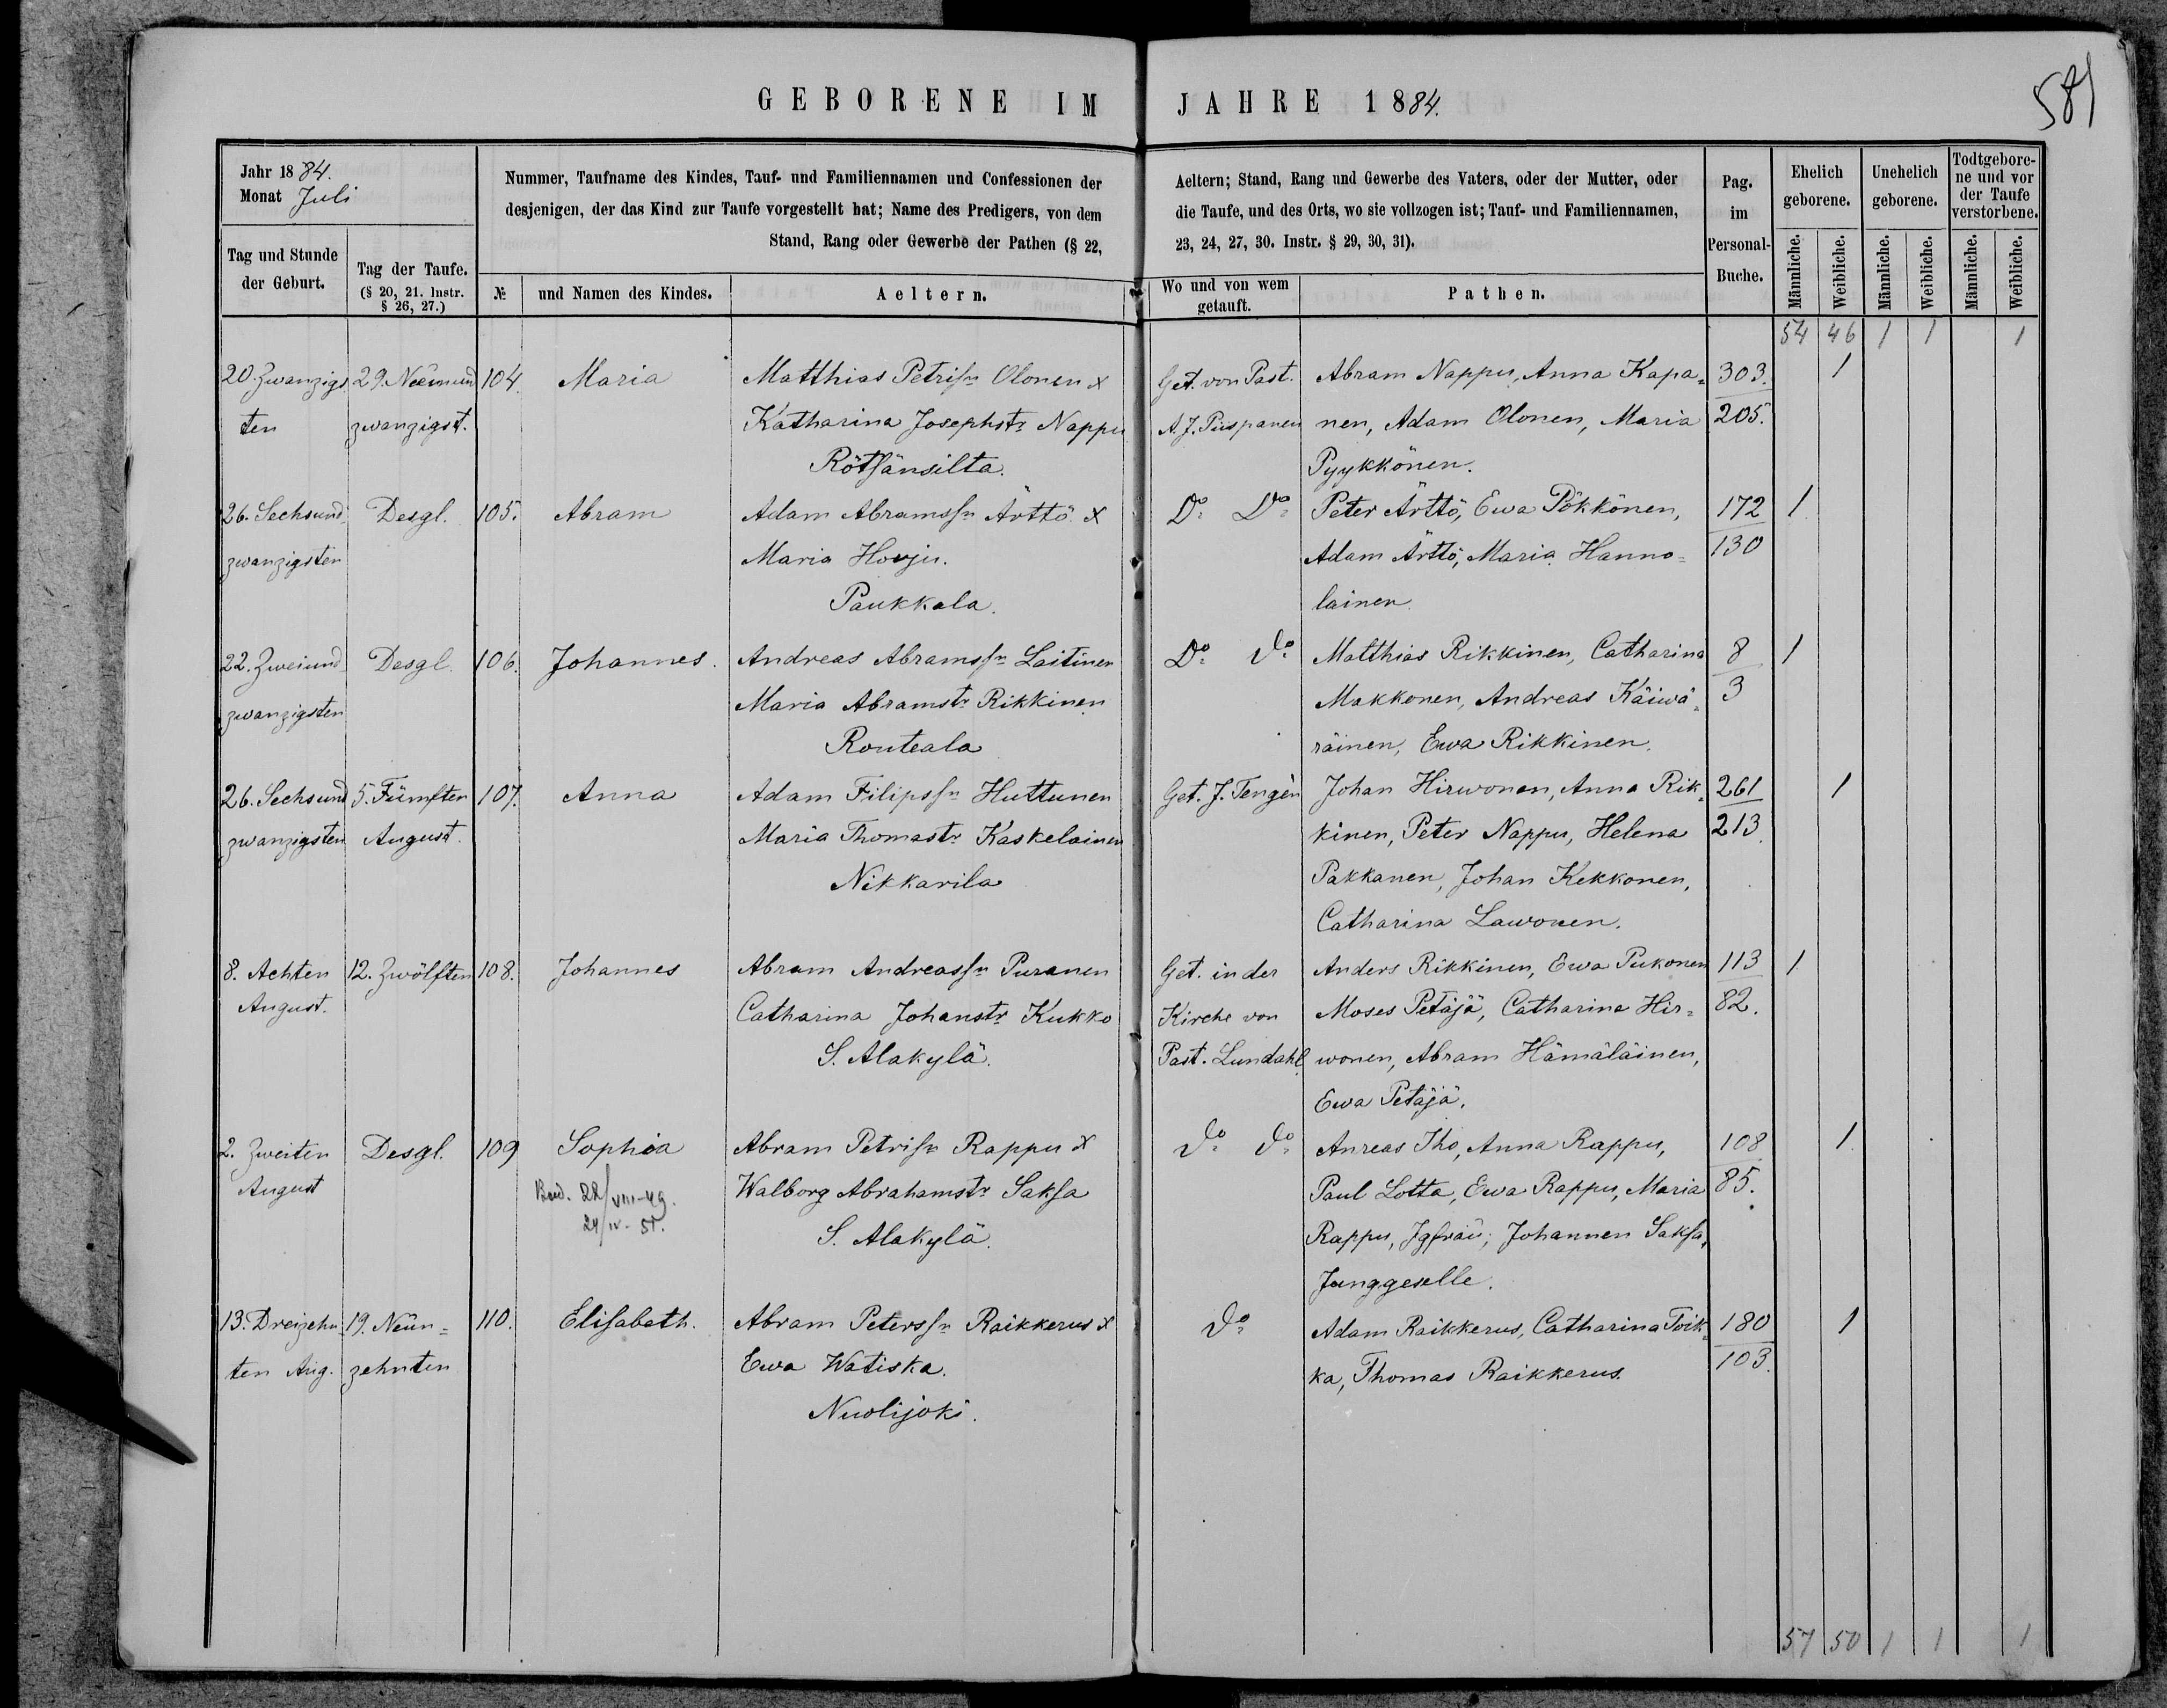 GEBORENE IM JAHRE 1884.
581
Jahr 1884.
Monat Juli
Nummer, Taufname des Kindes, Tauf- und Familiennamen und Confessionen der
desjenigen, der das Kind zur Taufe vorgestellt hat; Name des Predigers, von dem
Stand, Rang oder Gewerbe der Pathen (§ 22,
Aeltern; Stand, Rang und Gewerbe des Vaters, oder der Mutter, oder
die Taufe, und des Orts, wo sie vollzogen ist; Tauf- und Familiennamen,
23, 24, 27, 30. Instr. § 29, 30, 31).
Pag.
im
Personal-
Buche.
Ehelich
geborene.
Unehelich
geborene.
Todtgebore-
ne und vor
der Taufe
verstorbene.
Tag und Stunde
der Geburt.
Tag der Taufe.
(§ 20, 21. Instr.
§ 26, 27.)
№
und Namen des Kindes.
Aeltern.
Wo und von wem
getauft.
Pathen.
Männliche.
Weibliche.
Männliche.
Weibliche.
Männliche.
Weibliche.
54 46 1 1 1
20. Zwanzigs 29. Neünund 104. Maria Matthias Petrisn Olonen x Get. von Past. Abram Nappu, Anna Kapa= 303. 1
ten zwanzigst. Katharina Josephstr Nappu A. J. Püspanen nen, Adam Olonen, Maria 205.
Rötsänsilta. Pyykkönen.
26. Sechsund Desgl. 105. Abram Adam Abramssn Ärttö x Do Do Peter Ärttö, Ewa Pökkönen, 172 1
zwanzigsten Maria Hovju. Adam Ärttö, Maria Hanno= 130
Paukkala. lainen
22. Zweiund Desgl. 106. Johannes. Andreas Abramssn Laitinen Do do Matthias Rikkinen, Catharina 8 1
zwanzigsten Maria Abramstr Rikkinen Makkonen, Andreas Käiwä= 3
Routeala räinen, Ewa Rikkinen.
26. Sechsund 5. Fümften 107. Anna Adam Filipssn Huttunen Get. J. Tengèn Johan Hirwonen, Anna Rik= 261 1
zwanzigsten August. Maria Thomastr Kaskelainen kinen, Peter Nappu, Helena 213.
Nikkarila Pakkanen, Johan Kekkonen,
Catharina Lawonen.
8. Achten 12. Zwölften 108. Johannes Abram Andreassn Puranen Get. in der Anders Rikkinen, Ewa Pukonen 113 1
August. Catharina Johanstr Kukko Kirche von Moses Petäjä, Catharina Hir= 82.
S. Alakylä. Past. Lundahl. wonen, Abram Hämäläinen,
Ewa Petäjä.
2. Zweiten Desgl. 109 Sophia Abram Petrisn Rappu x do do Anreas Iho, Anna Rappu, 108 1
August 22/VIII-49. Walborg Abrahamstr Saksa Paul Lotta, Ewa Rappu, Maria 85.
24/IV-51. S. Alakylä. Rappu, Jgfraü; Johannen Saksa,
Junggeselle.
13. Dreizehn 19. Neün= 110. Elisabeth. Abram Peterssn Raikkerus x do Adam Raikkerus, Catharina Toik= 180 1
ten Aug. zehnten Ewa Watiska. ka, Thomas Raikkerus. 103.
Nuolijoki.
57 50 1 1 1